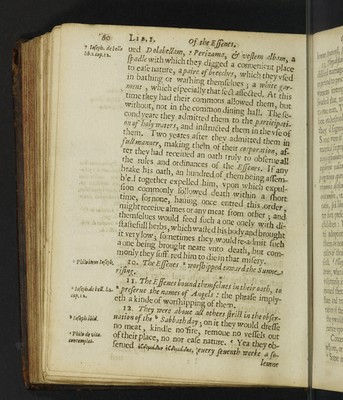 60 LIB. I. Of the Essenes.
ued Dolabellam, & Perizoma, & vestem albam, a
spadle with which they digged a convenient place
to ease nature, a paire of breeches, which they vsed
in bathing or washing themselues; a white gar-
ment, which especially that sect affected. At this
time they had their commons allowed them, but
without, not in the common dining hall. The se-
cond yeare they admitted them to the participati-
on of holy waters, and instructed them in the vse of
them. Two yeares after they admitted them in
full manner, making them of their corporation, af-
ter they had receiued an oath truly to obserue all
the rules and ordinances of the Essenes. If any
brake his oath, an hundred of them being assem-
bled together expelled him, vpon which expul-
sion commonly followed death within a short
time, for none, hauing once entred this order,
might receiue almes or any meat from other; and
themselues would feed such a one onely with di-
stastefull herbs, which wasted his body and brought
it very low; sometimes they would re-admit such
a one being brought neare vnto death, but com-
monly they suffered him to die in that misery.
10. The Essenes worshipped toward the Sunne
rising.
11. The Essenes bound themselues in their oath, to
preserue the names of Angels: the phrase imply-
eth a kinde of worshipping of them.
12. They were aboue all others strict in the obser-
uation of the Sabbath day; on it they would dresse
no meat, kindle no fire, remoue no vessels out
of their place, no nor ease nature. Yea they ob-
serued euery seuenth weeke a so-
lemne
Ioseph. de bello
lib. 2. cap. 12.
Philo
Ioseph.
Ioseph. de bell. l. 2.
cap. 12.
Ioseph. ibid.
Philo de vita
contemplat.